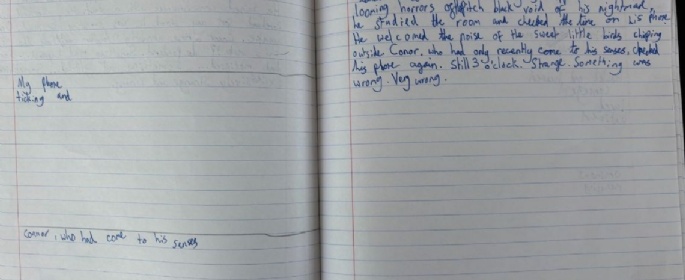 My phone
ticking and
Connor, who had come to his senses
looming horrors of pitch black void of his nightmare
he studied the room and checked the time on his phone
He welcomed the noise of the sweet little birds chiping
outside Conor, who had only recently come to his senses, checked
his phone again. Still 3 o'clock. Strange. Something was
wrong. Very wrong.